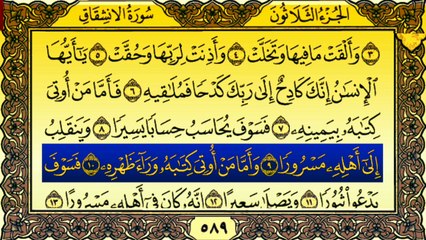 الجزء الثلاثون سورة الانشقاق
٣ وَأَلْقَتْ مَا فِيهَا وَتَخَلَّتْ ٤ وَأَذِنَتْ لِرَبِّهَا وَحُقَّتْ ٥ يَٰٓأَيُّهَا
ٱلْإِنسَٰنُ إِنَّكَ كَادِحٌ إِلَىٰ رَبِّكَ كَدْحًا فَمُلَٰقِيهِ ٦ فَأَمَّا مَنْ أُوتِىَ
كِتَٰبَهُۥ بِيَمِينِهِۦ ٧ فَسَوْفَ يُحَاسَبُ حِسَابًا يَسِيرًا ٨ وَيَنقَلِبُ
إِلَىٰٓ أَهْلِهِۦ مَسْرُورًا ٩ وَأَمَّا مَنْ أُوتِىَ كِتَٰبَهُۥ وَرَآءَ ظَهْرِهِۦ ١٠ فَسَوْفَ
يَدْعُوا۟ ثُبُورًا ١١ وَيَصْلَىٰ سَعِيرًا ١٢ إِنَّهُۥ كَانَ فِىٓ أَهْلِهِۦ مَسْرُورًا ١٣
٥٨٩